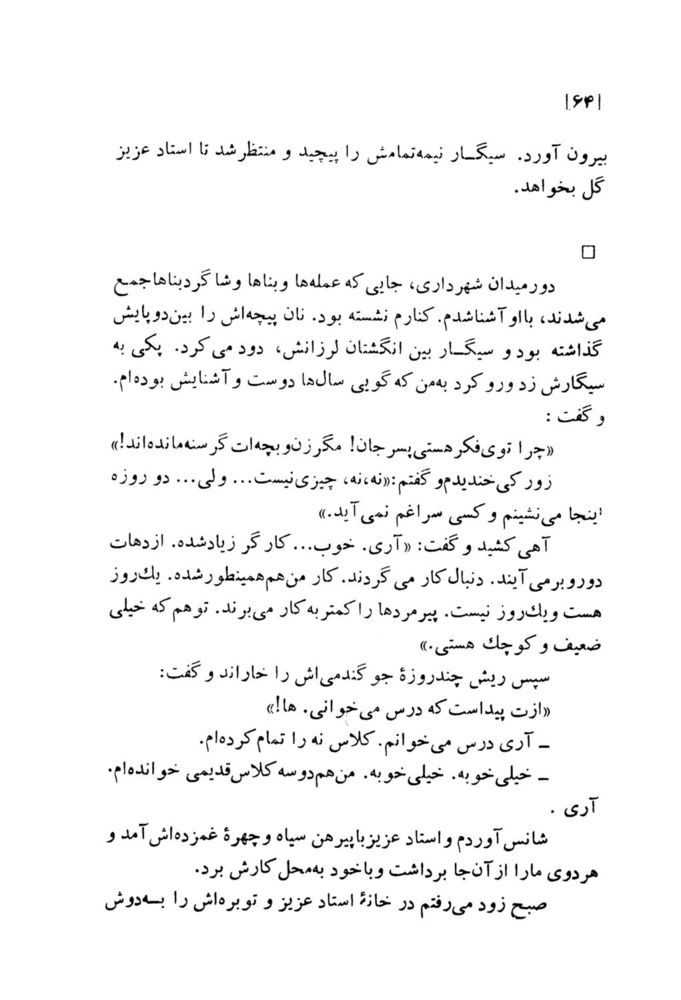 |۶۴|
بیرون آورد. سیگـار نیمه‌تمامش را پیچید و منتظرشد تا استاد عزیز
گل بخواهد.
□
دورمیدان شهرداری، جایی‌که عمله‌ها وبناها وشاگردبناهاجمع
می‌شدند، بااو آشناشدم. کنارم نشسته بود. نان پیچه‌اش را بین‌دوپایش
گذاشته بود و سیگـار بین انگشتان لرزانش، دود می‌کرد. پکی به
سیگارش زد ورو کرد به‌من که‌گویی سال‌ها دوست و آشنایش بوده‌ام.
و گفت :
«چرا توی‌فکرهستی‌پسرجان! مگرزن‌وبچه‌ات گرسنه‌مانده‌اند!»
زورکی‌خندیدم‌و گفتم:«نه،نه، چیزی‌نیست... ولی... دو روزه
اینجا می‌نشینم و کسی سراغم نمی‌آید.»
آهی کشید و گفت: «آری. خوب... کارگر زیادشده. ازدهات
دوروبرمی‌آیند. دنبال‌کار می‌گردند. کار من‌هم‌همینطورشده. یك‌روز
هست ویك‌روز نیست. پیرمردها را کمتربه‌کار می‌برند. توهم‌که خیلی
ضعیف و کوچك هستی.»
سپس ریش چندروزهٔ جوگندمی‌اش را خاراند و گفت:
«ازت پیداست‌که درس می‌خوانی. ها!»
ـ آری درس می‌خوانم. کلاس نه را تمام‌کرده‌ام.
ـ خیلی‌خوبه. خیلی‌خوبه. من‌هم‌دوسه‌کلاس‌قدیمی خوانده‌ام.
آری .
شانس‌آوردم واستاد عزیزباپیرهن سیاه وچهرهٔ غمزده‌اش‌آمد و
هردوی مارا ازآن‌جا برداشت وباخود به‌محل‌کارش برد.
صبح زود می‌رفتم در خانهٔ استاد عزیز و توبره‌اش را بـه‌دوش